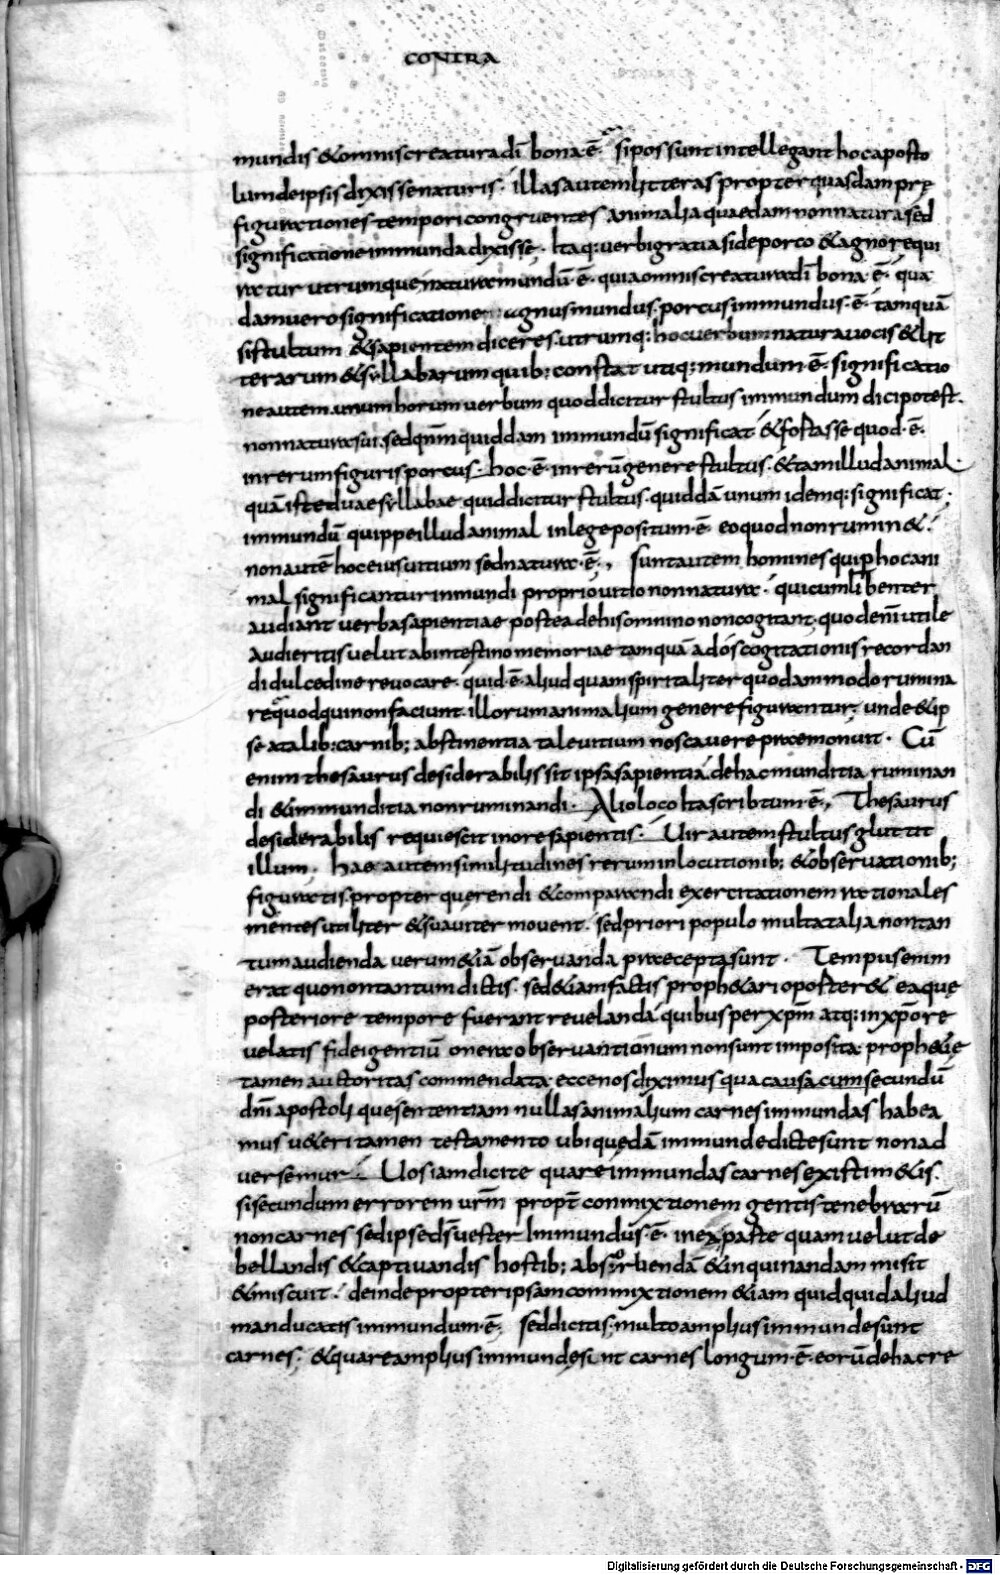 CONTRA
mundis &omniscreaturadī bona·ē· si possunt intellegant hocaposto
lumdeipsisdixissenaturis· illasautemlitteras propter quasdampre
figurationes tempori congruentes animalia quaedam nonnatura sed
significatione immunda dixisse· Itaq: verbigratia sideporco &agno requi
ratur utrumque natura mundū·ē· quia omniscreaturadī bona·ē· qua
damuero significatione agnus mundus porcus immundus·ē· tamquā
sistultum &sapientem diceres utrumq: hocuerbum naturauocis &lit
terarum &syllabarum quib; constat utiq: mundum·ē· significatio
neautem unum horum uerbum quoddicitur stultus immundum dicipotest·
nonnaturasui sedqnm̄ quiddam immundū significat &fostasse quod·ē·
inrerumfiguris porcus· hoc·ē· inrerū genere stultus· &tamilludanimal·
quā isteduae syllabae quiddicitur stultus· quiddā unum idemq: significat·
immundū quippeilludanimal inlegepositum·ē· eoquodnonrumin&·
nonautē hoceiusuitium sednatura·ē·, Suntautem homines quip hocani
mal significantur inmundi propriouitio nonnatura· quicumlibenter
audiant uerbasapientiae posteadehisomnino noncogitant· quodenī utile
audieritis uelutabintestinomemoriae tamquā ad os cogitationis recordan
didulcedine reuocare· quid·ē·aliud quamspiritaliter quodammodo rumina
re quodquinonfaciunt· illorumanimalium generefigurantur; unde&ip
se atalib; carnib; abstinentia taleuitium noscauere praemonuit· Cū
enim thesaurus desiderabilis sit ipsasapientia dehacmunditia ruminan
di &immunditia nonruminandi· Alioloco Itascribtum·ē·, Thesaurus
desiderabilis requiescit inoresapientis· Uir autemstultus gluttit
illum· hae autemsimilitudines rerum inlocutionib; &obseruationib;
figuratis· propter querendi &comparandi exercitationem rationales
mentes utiliter &suauiter mouent· sedpriori populo multatalia nontan
tumaudienda uerum&iā obseruanda praecepta sunt· Tempusenim
erat quonontantumdictis· sed&iamfactis proph&ari oporter& eaque
posteriore tempore fuerant reuelanda quibus per xpm̄ atq: inxpō re
uelatis fideigentiū onera obseruantionum nonsunt imposita proph&ie
tamen auctoritas commendata eccenosdiximus quacausa cum secundū
dnī apostoli quesententiam nullasanimalium carnes immundas habea
mus u&eri tamen testamento ubiquedā immunde dicte sunt nonad
uersemur· Uosiamdicite quare immundascarnes existim&is·
sisecundum errorem urm̄ propt̄ conmixtionem gentistenebrarū
noncarnes sedipsedsuester Immundus·ē· inexparte quamuelutde
bellandis &captiuandis hostib; absorbendā &inquinandam misit
&miscuit· deindepropteripsamcommixtionem &iam quidquidaliud
manducatis immundum·ē· seddicitis multoamplius immundesunt
carnes· &quareamplius immunde sunt carnes longum·ē· eorūdehacre